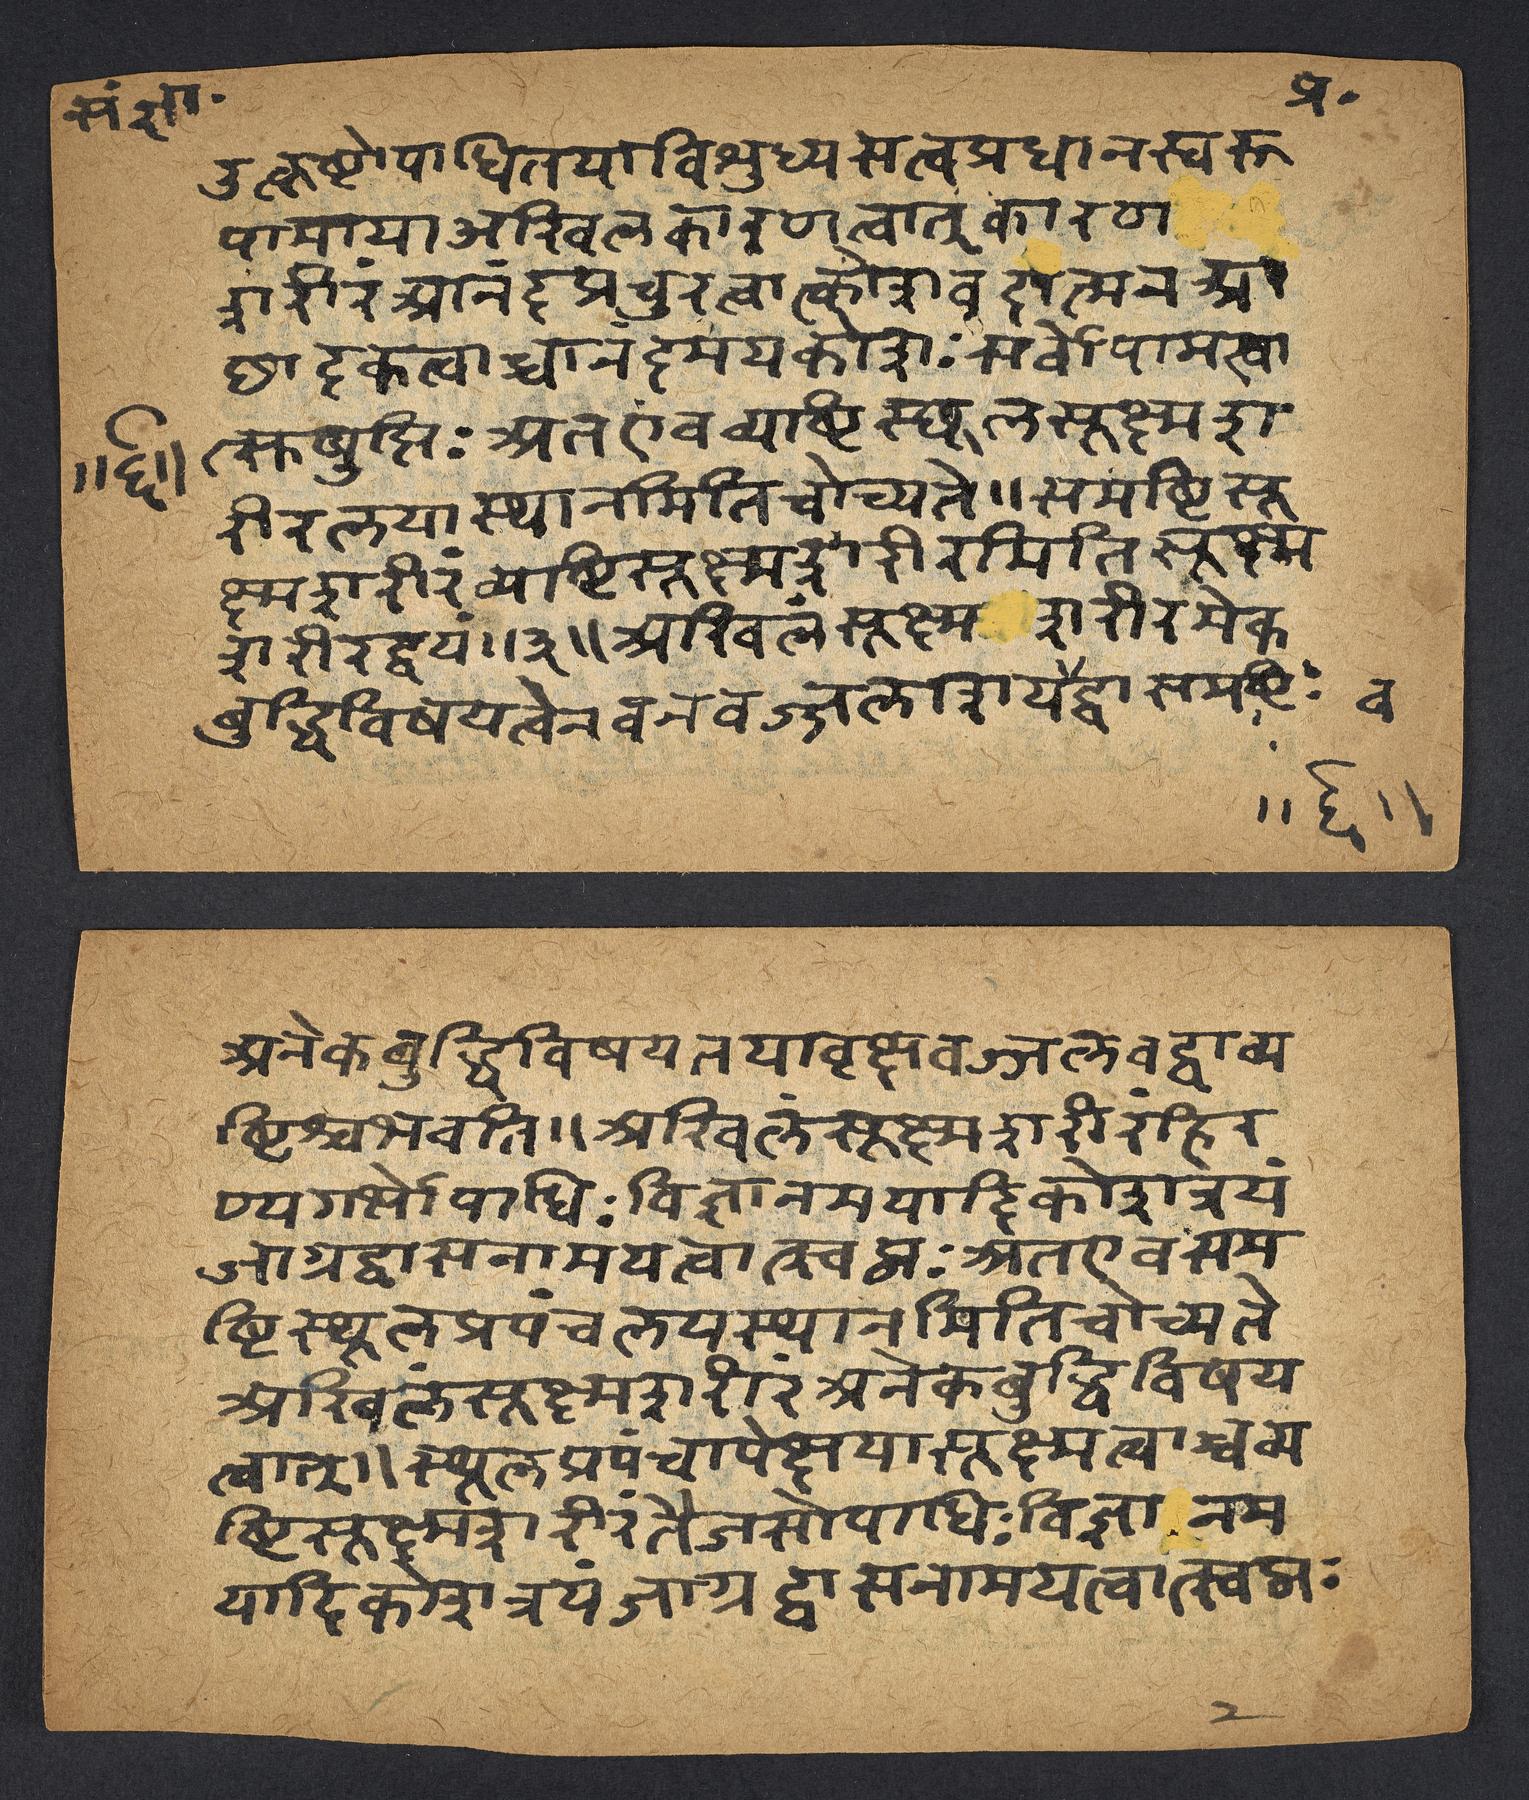 संज्ञा.
प्र.
दुत्कृष्टोपाधितयाविशुध्यसत्वप्रधानस्वरू
पामायाअखिलकारणत्वात्कारण
शरीरंआनंदप्रचुरत्वात्कोशवदात्मनआ
छादकत्वाच्चानंदमयकोशः सर्वोपामत्वा
त्सकषुप्तिः अतएवव्याष्टिस्थूलसूक्ष्मशा
॥६॥
रीरलयास्थानमितिचोच्यते॥समष्टिसू
क्ष्मशरीरंव्याष्टिसूक्ष्मशरीरमितिसूक्ष्म
शरीरद्वयं॥३॥अखिलंसूक्ष्मशरीरमेक
बुद्धिविषयत्वेनवनवज्जलाशयैद्वासमष्टिः
व
॥६॥
अनेकबुद्धिविषयतयावृक्षवज्जलवद्वाव्य
ष्टिश्चभवति॥अखिलंसूक्ष्मशरीरंहिर
ण्यगर्भोपाधिःविज्ञानमयादिकोशत्रयं
जाग्रद्वासनामयत्वात्स्वप्नः अतएवसम
ष्टिस्थूलप्रपंचलयस्थानमितिचोच्यते
अखिलंसूक्ष्मशरीरंअनेकबुद्धिविषय
त्वात्॥स्थूलप्रपंचापेक्षयासूक्ष्मत्वाच्चव्य
ष्टिसूक्ष्मशरीरंतैजसोपाधिःविज्ञानम
यादिकोशत्रयंजाग्रद्वासनामयत्वात्स्वप्नः
2